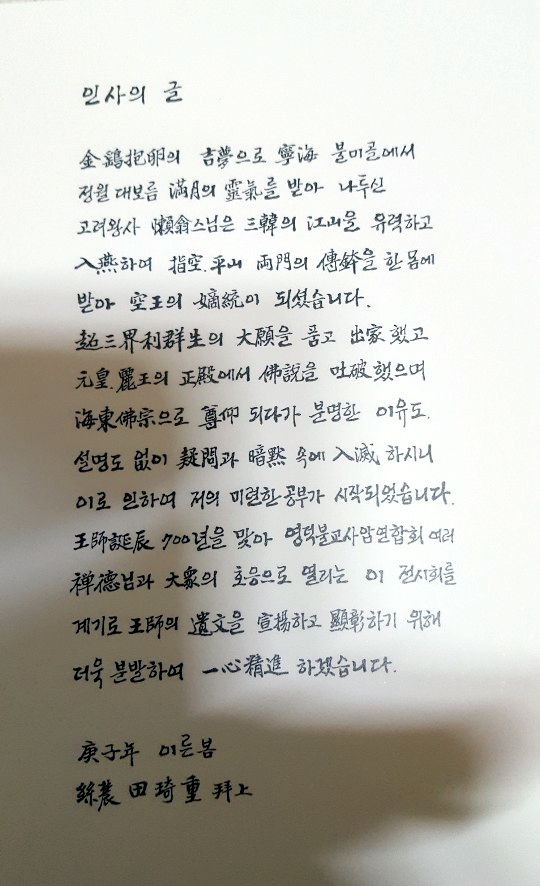 인사의 글
金鷄抱卵의 吉夢으로 寧海 불미골에서
정월 대보름 滿月의 靈氣를 받아 나투신
고려왕사 懶翁스님은 三韓의 江山을 유력하고
入燕하여 指空.平山 両門의 傳鉢을 한 몸에
받아 空王의 嫡統이 되셨습니다.
超三界利群生의 大願을 품고 出家 했고
元皇.麗王의 正殿에서 佛說을 吐破 했으며
海東佛宗으로 尊仰 되다가 분명한 이유도.
설명도 없이 疑問과 暗黙 속에 入滅 하시니
이로 인하여 저의 미련한 공부가 시작되었습니다.
王師誕辰 700년을 맞아 영덕불교사암연합회 여러
禅德님과 大衆의 호응으로 열리는 이 전시회를
계기로 王師의 遺文을 宣揚하고 顯彰하기 위해
더욱 분발하여 一心精進 하겠습니다.
庚子年 이른봄
絲農 田琦重 拜上